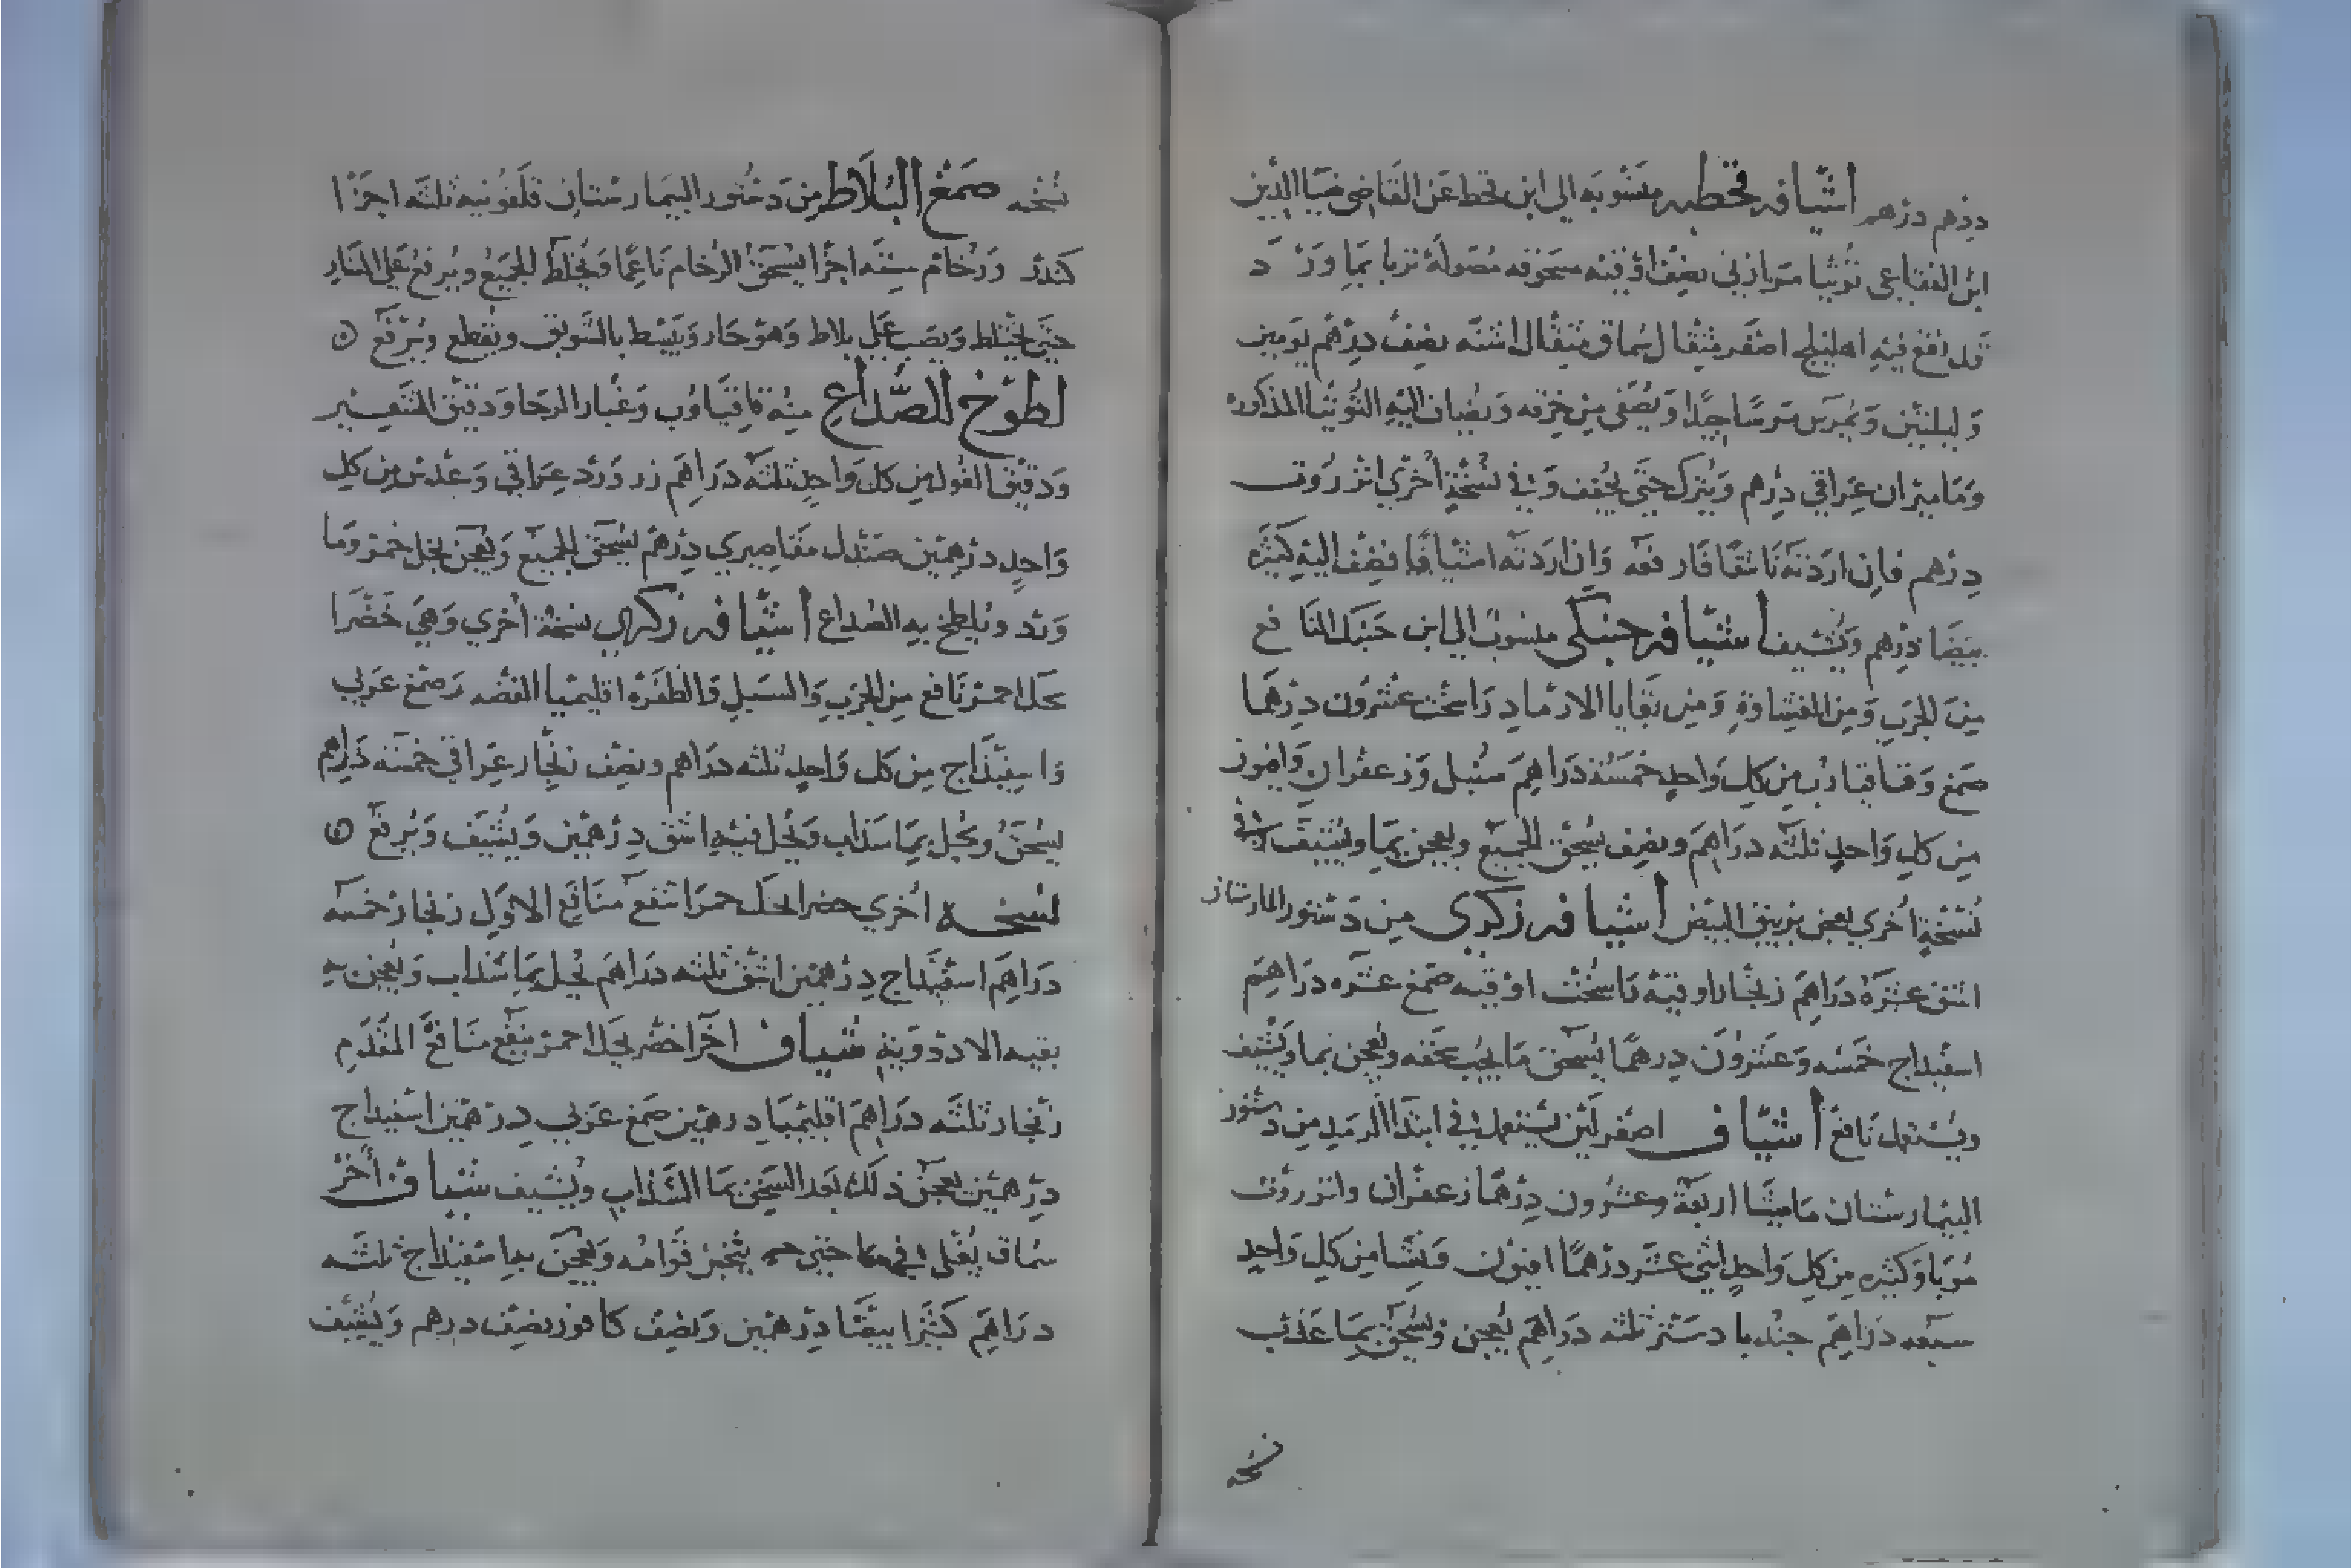 درهم درهم اشيافه قحطيه منسوبه الي ابن قحط عن القاضي ضيا الدين
ابن الفقاعي توتيا مرازبي نصف اوقيه مسحوقه مصولة تربا بما ورد
قد انقع فيه اهليلج اصفر مثقال سماق مثقال اشنه نصف درهم يومين
وليلتين ويمرس مرسا جيدا ويصفي من خرقه ويضاف اليه التوتيا المذكوره
وماميران عراقي درهم ويترك حتي يجفف وفي نسخة اخري انزروت
درهم فان اردته ناشفا فارفعه وان اردته اشيافا فضف اليه كثيره
بيضا درهم ويشيف اشيافه حنبكي منسوب الي ابن حنبك النافع
من الجرب ومن الغشاوة ومن بقايا الارماد راسخت عشرون درهما
صمغ وقاقيا وب من كل واحد خمسة دراهم سنبل وزعفران وافيون
من كل واحد ثلثه دراهم ونصف يسحق الجميع ويعجن بما ويشيف وفي
نسخة اخري يعجن بزيبق البيض اشيافه زكري من دستور المارستان
اشق عشرة دراهم زنجار اوقيه راسخت اوقيه صمغ عشره دراهم
اسفيداج خمسه وعشرون درهما يسحق ما يجب سحقه ويعجن بما ويشيف
ويستعمل نافع اشياف اصفر لين يستعمل في ابتدا الرمد من دستور
البيمارستان ماميثا اربعة وعشرون درهما زعفران وانزروت
مربا وكثيره من كل واحد اثني عشر درهما افيون ونشا من كل واحد
سبعه دراهم جندبادستر ثلثه دراهم يعجن ويسحق بما عذب
نسخه
نسخه صمغ البلاط من دستور البيمارستان قلفونيه ثلثه اجزا
كندر ورخام سته اجزا يسحق الرخام ناعما ويخلط الجميع ويرفع علي النار
حتي يختلط ويصب علي بلاط وهو حار ويبسط بالسويق ويقطع ويرفع
لطوخ للصداع منه قاقيا وب وغبار الرحا ودقيق الشعير
ودقيق الفول من كل واحد ثلثه دراهم زر ورد عراقي وعدس من كل
واحد درهمين صندل مقاصيري درهم يسحق الجميع ويعجن بخل خمر وما
ورد ويلطخ به الصداع اشيافه زكري نسخة اخري وهي خضرا
بحل احمر نافع من الجرب والسبل والظفره اقليميا الفضه وصمغ عربي
واسفيداج من كل واحد ثلثه دراهم ونصف زنجار عراقي خمسه دراهم
يسحق ويحل بما سذاب ويحل فيه اشق درهمين ويشيف ويرفع
نسخه اخري خضرا تحل حمرا تنفع منافع الاول زنجار خمسه
دراهم اسفيداج درهمين اشق ثلثه دراهم يحل بما سذاب ويعجن به
بقيه الادوية شياف اخر اخضر يحل احمر ينفع منافع المقدم
زنجار ثلثه دراهم اقليميا درهمين صمغ عربي درهمين اسفيداج
درهمين يعجن ذلك بعد السحق بما السذاب ويشيف شياف اخر
سماق يغلي في ما حتي يثخن قوامه ويعجن به اسفيداج ثلثه
دراهم كثيرا بيضا درهمين ونصف كافور نصف درهم ويشيف